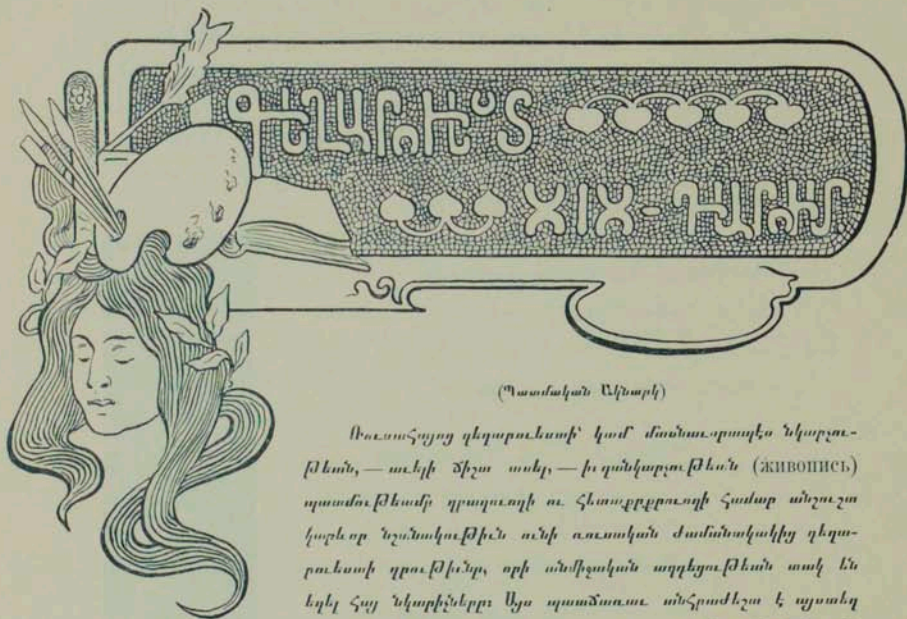 ԳԵՂԱՐՈՒԵՍՏ
XIX-ԴԱՐՈՒՄ
(Պատմական Ակնարկ)
Ռուսահայոց գեղարուեստի՝ կամ մասնաւորապէս նկարչու-
թեան, — աւելի ճիշտ ասել, — իւղանկարչութեան (живопись)
պատմութեամբ զբաղուողի ու հետաքրքրուողի համար անշուշտ
կարեւոր նշանակութիւն ունի ռուսական ժամանակակից գեղա-
րուեստի դրութիւնը, որի անմիջական ազդեցութեան տակ են
եղել հայ նկարիչները։ Այս պատճառաւ անհրաժեշտ է այստեղ